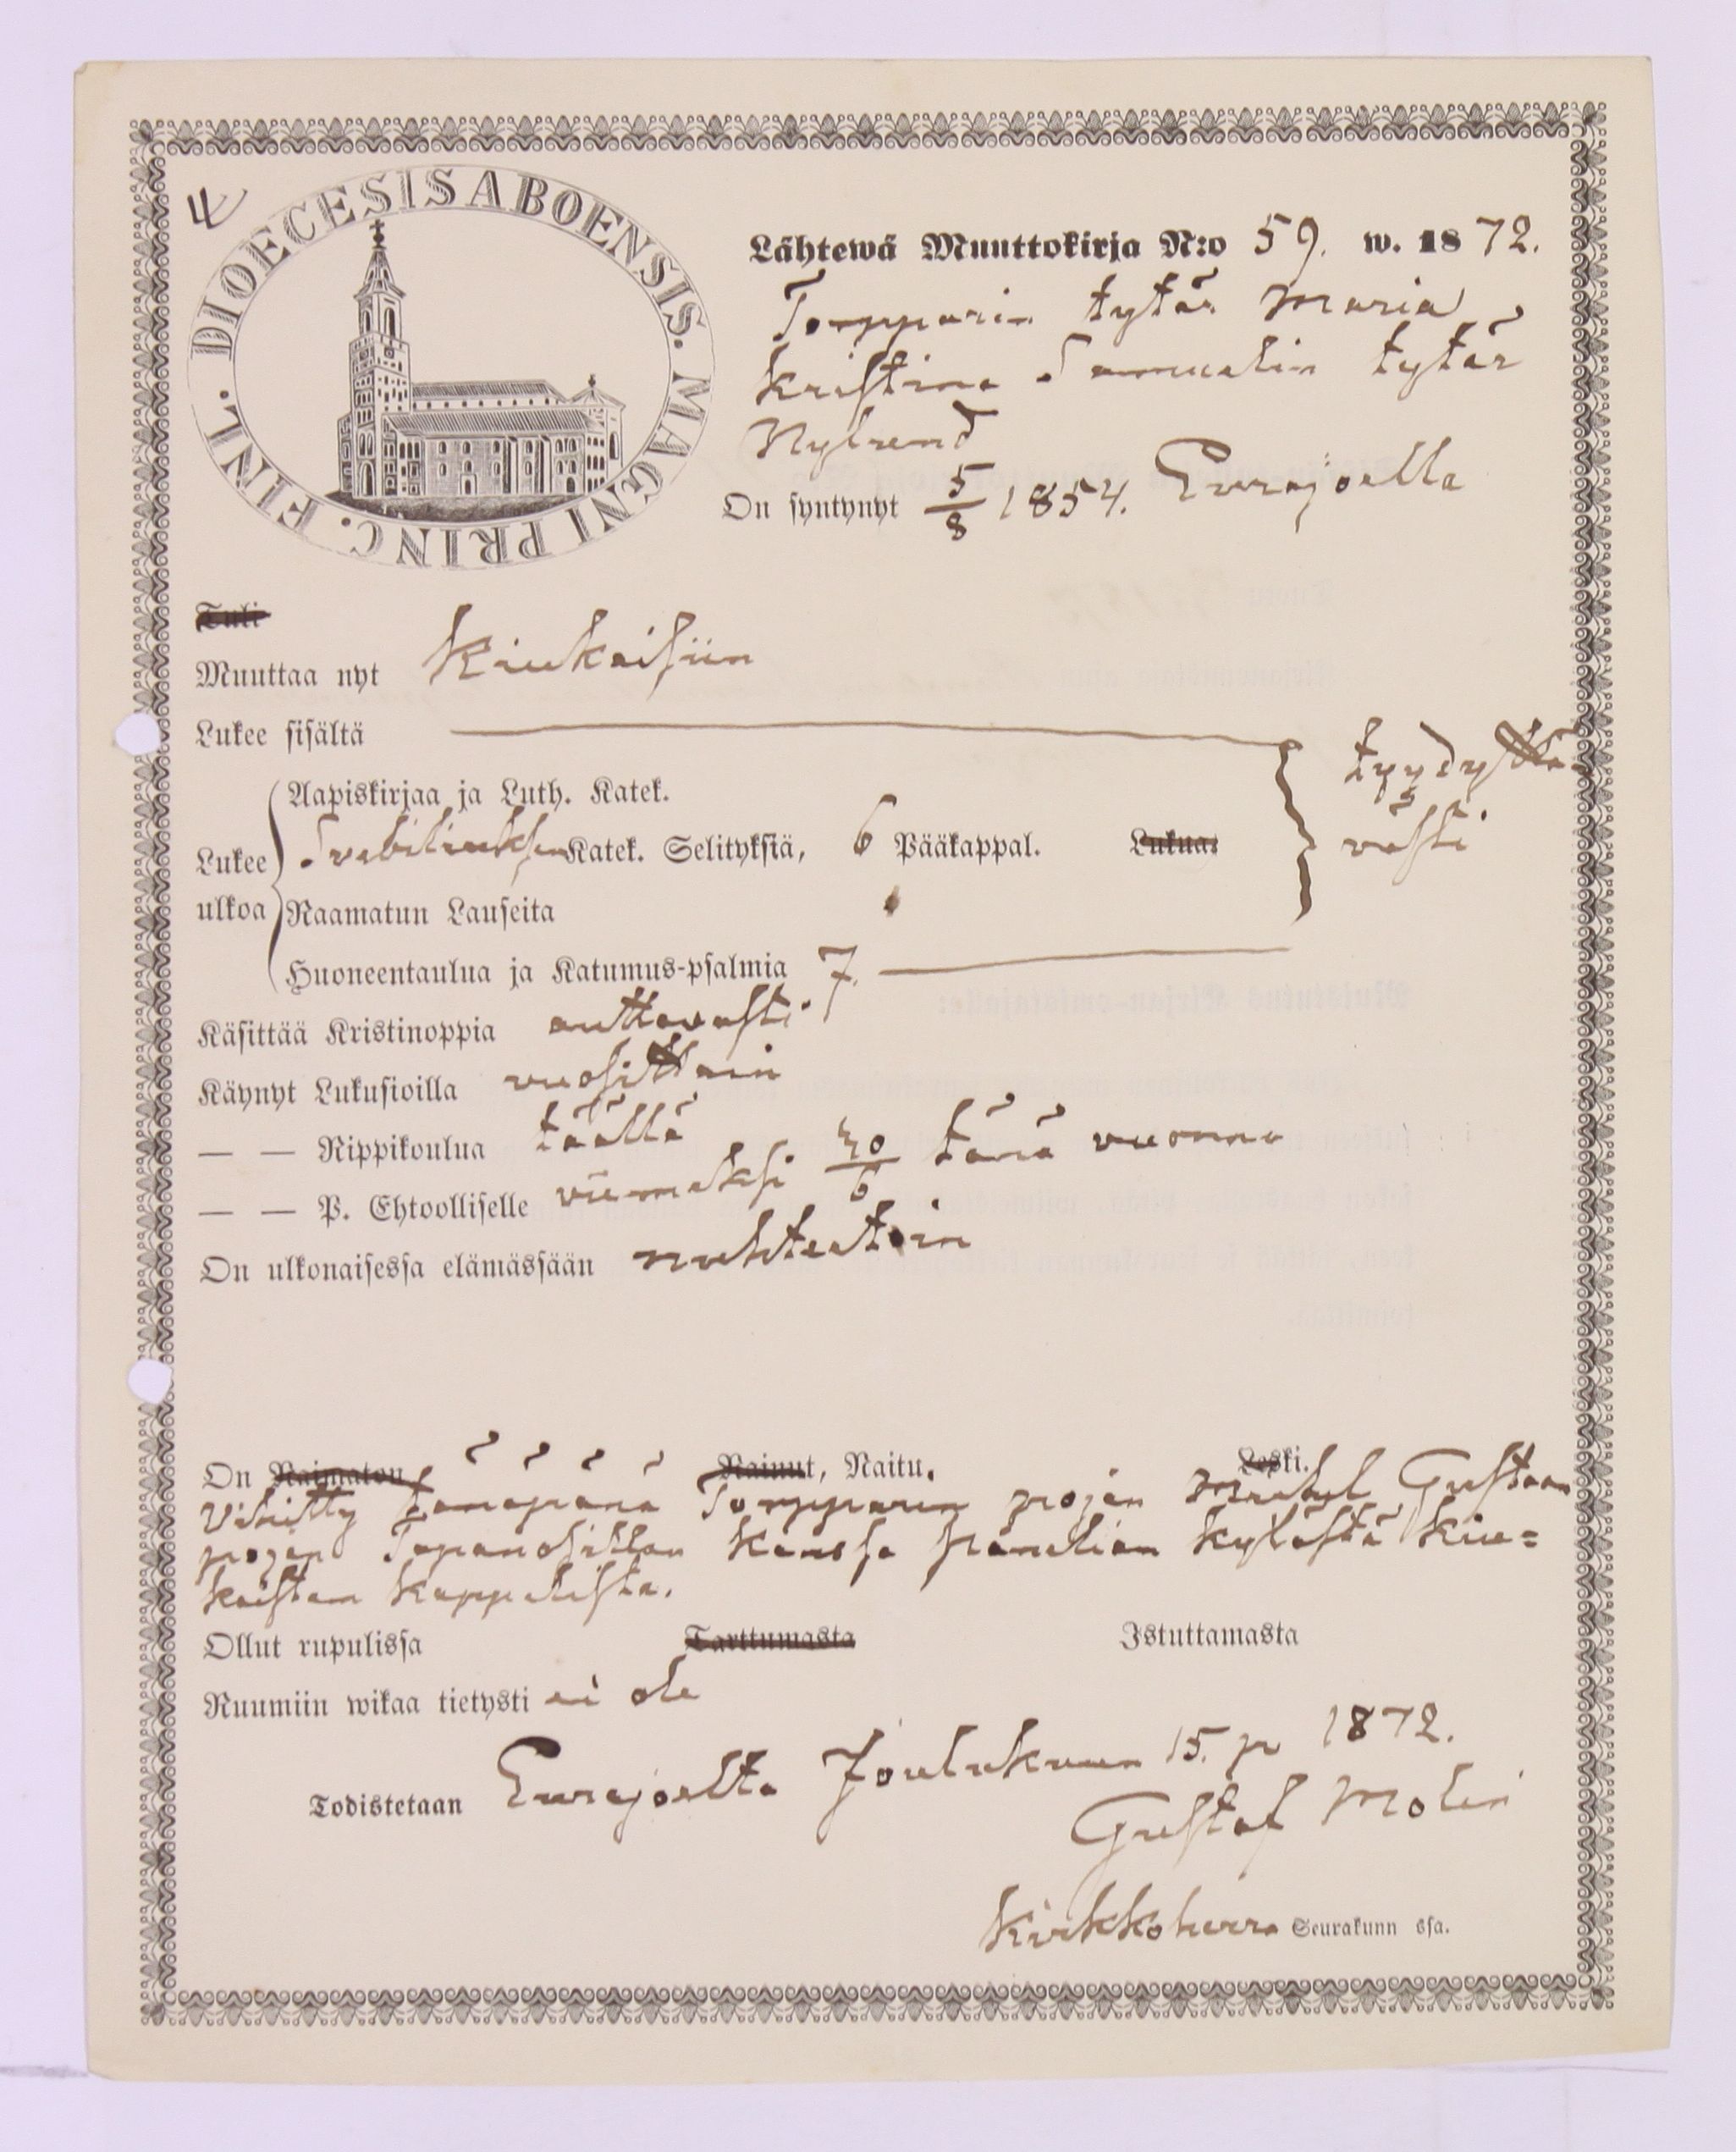 4
DIOECESIS ABOENSIS. MAGNI PRINC. FINL.
Lähtewä Muuttokirja N:o 59. w. 1872.
Torpparin tytär Maria
Kristina Samuelin tytär
Nylund
On syntynyt 5/8 1854. Eurajoella
Tuli
Muuttaa nyt Kiukaisiin
Lukee sisältä
tyydyttä-
västi
Aapiskirjaa ja Luth. Katek.
Lukee ulkoa
Svebiliuksen Katek. Selityksiä, 6 Pääkappal. Lukua:
Raamatun Lauseita
Huoneentaulua ja Katumus-psalmia 7.
Käsittää Kristinoppia auttavasti
Käynyt Lukusioilla vuosittain
— — Rippikoulua täällä
— — P. Ehtoolliselle viimeksi 30/6 tänä vuonna
On ulkonaisessa elämässään nuhteetoin
On Naimaton Nainut, Naitu. Leski.
Vihitty tänäpänä Torpparin pojan Gustaan
pojan kanssa Panelian kylästä Kiu=
kaisten kappelista.
Ollut rupulissa Tarttumasta Istuttamasta
Ruumiin wikaa tietysti ei ole
Todistetaan Eurajoelta Joulukuun 15. p 1872.
Gustaf Molin
Kirkkoherra Seurakunn ssa.